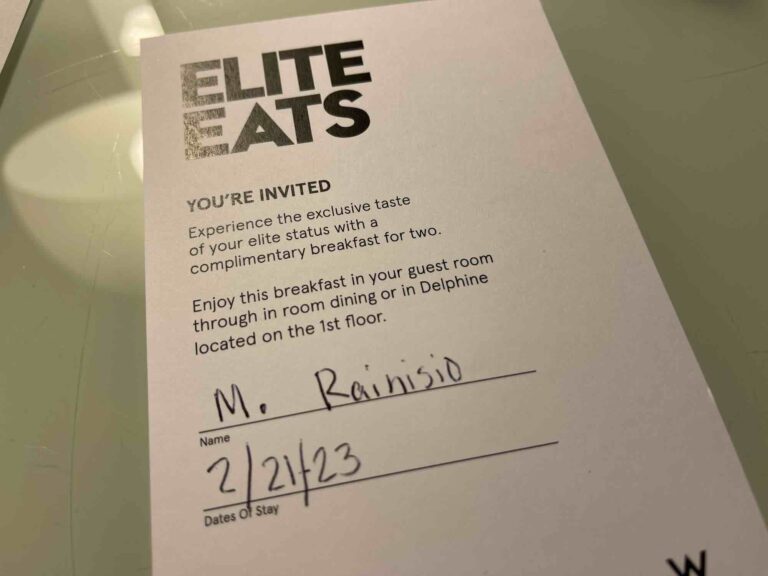 ELITE
EATS
YOU'RE INVITED
Experience the exclusive taste
of your elite status with a
complimentary breakfast for two.
Enjoy this breakfast in your guest room
through in room dining or in Delphine
located on the 1st floor.
M. Rainisio
Name
2/21/23
Dates Of Stay
W